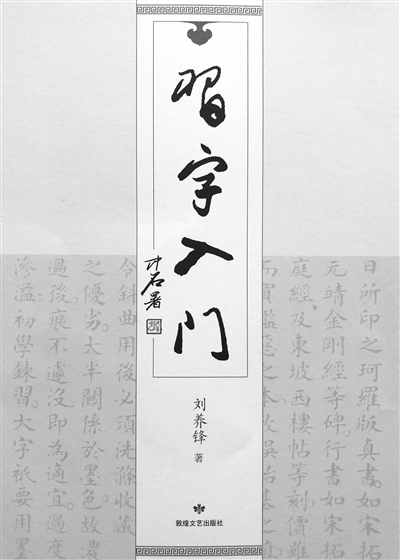 習字入门
中石署
刘养锋 著
敦煌文艺出版社
日所印之珂羅版真書如宋拓
元靖金剛經等碑行書如宋拓
庭經及東坡西樓帖等刻價雖
而買濫惡之本故
令斜曲用後必須洗滌收藏
之優劣大半關係於墨色故濃
過後痕不遽沒即為適宜過度
滲溢初學練習大字祇要用墨